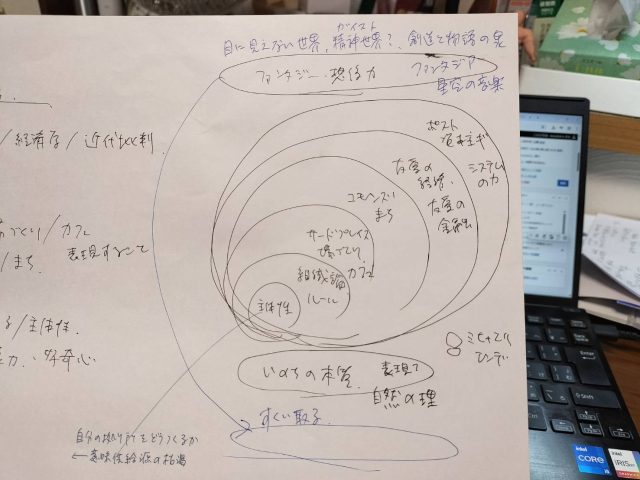 目に見えない世界、精神世界?、創造と物語の泉
ガイスト
ファンタジー・想像力
ファンタジア
星空の音楽
/経済学/近代批判
ポスト
資本主義
友愛の
経済・
システム
の力
友愛の
金融
コモンズ
まち
づくり/カフェ
/まち.
表現すること
サードプレイス
場づくり
カフェ
組織論
ルール
主体性
/主体性.
力、好奇心
ミヒャエル
エンデ
いのちの本質.
表現て
自然の理
すくい取る
自分の拠り所をどうつくるか
←意味供給源の枯渇
Enter
intel
CORE
i5
intel
IRIS